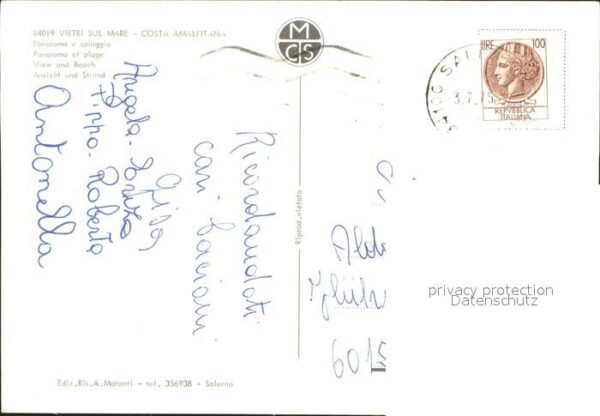 84019 VIETRI SUL MARE - COSTA AMALFITANA
Panorama e spiaggia
Panorama et plage
View and Beach
Ansicht und Strand
MCS
LIRE 100
REPVBBLICA
ITALIANA
3.7.75
Ricordandoti
cari bacioni
Angela
Pippo. Roberto
Antonella
Riprod. vietata
Aldo
6015
privacy protection
Datenschutz
Ediz. Ris. A. Matonti - tel. 356938 - Salerno